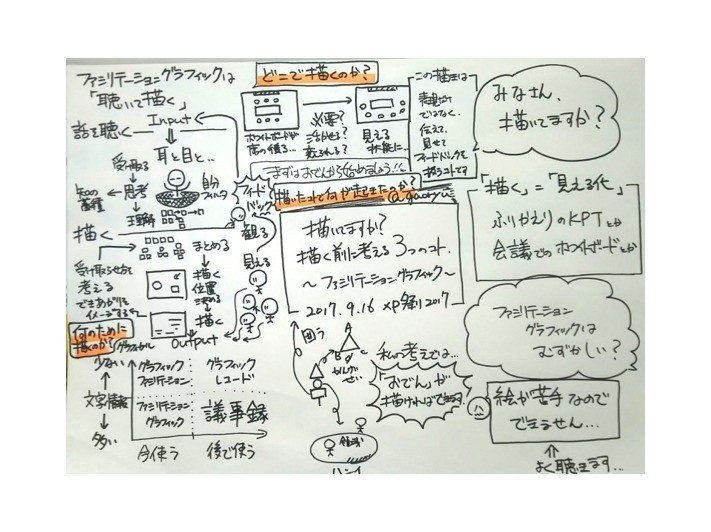 ファシリテーショングラフィックは
「聴いて描く」
話を聴く
Input
耳と目と…
受け取る
知の蓄積
思考
自分フィルター
理解
描く
まとめる
受け取らせ方を
考える
できあがりを
イメージする
描く
位置
決める
描く
Output
フィード
バック
観る
見える
何のために
描くのか?
少ない
文字情報
多い
グラフィック
ファシリテーション
グラフィック
レコード
ファシリテーション
グラフィック
議事録
今使う
後で使う
どこで描くのか?
ホワイトボードが
席の後ろ…
必要?
活かせる?
変えられる?
見える
状態に…
この描生は
表現だけ
ではなく、
伝えて、
見せて
フィードバックを
まずはおでんから始めましょう!!
描いたコトで何が起きたのか?
@gaoryu
描いてますか?
描く前に考える3つのコト
～ファシリテーショングラフィック～
2017.9.16 XP祭り2017
囲う
A
B
ハンイ
私の考えでは…
「おでん」が
描ければできます。
みなさん、
描いてますか?
「描く」=「見える化」
ふりかえりのKPTとか
会議でのホワイトボードとか
ファシリテーション
グラフィックは
むずかしい?
絵が苦手なので
できません…
よく聴きます…